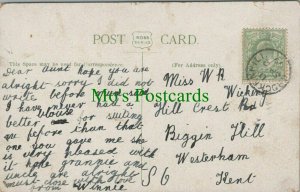 POST CARD.
This Space may be used for Correspondence
(For Address only.)
Dear Aunt hope you are
alright sorry I did not
write before
I have never had a
better blouse for suiting
me before than that
one you gave me she
is very pleased with
it hope grannie and
uncle are alright
must close with love
Winnie
Miss W A
Wicking
Hill Crest
Biggin Hill
Westerham
S6 Kent
MQ's Postcards